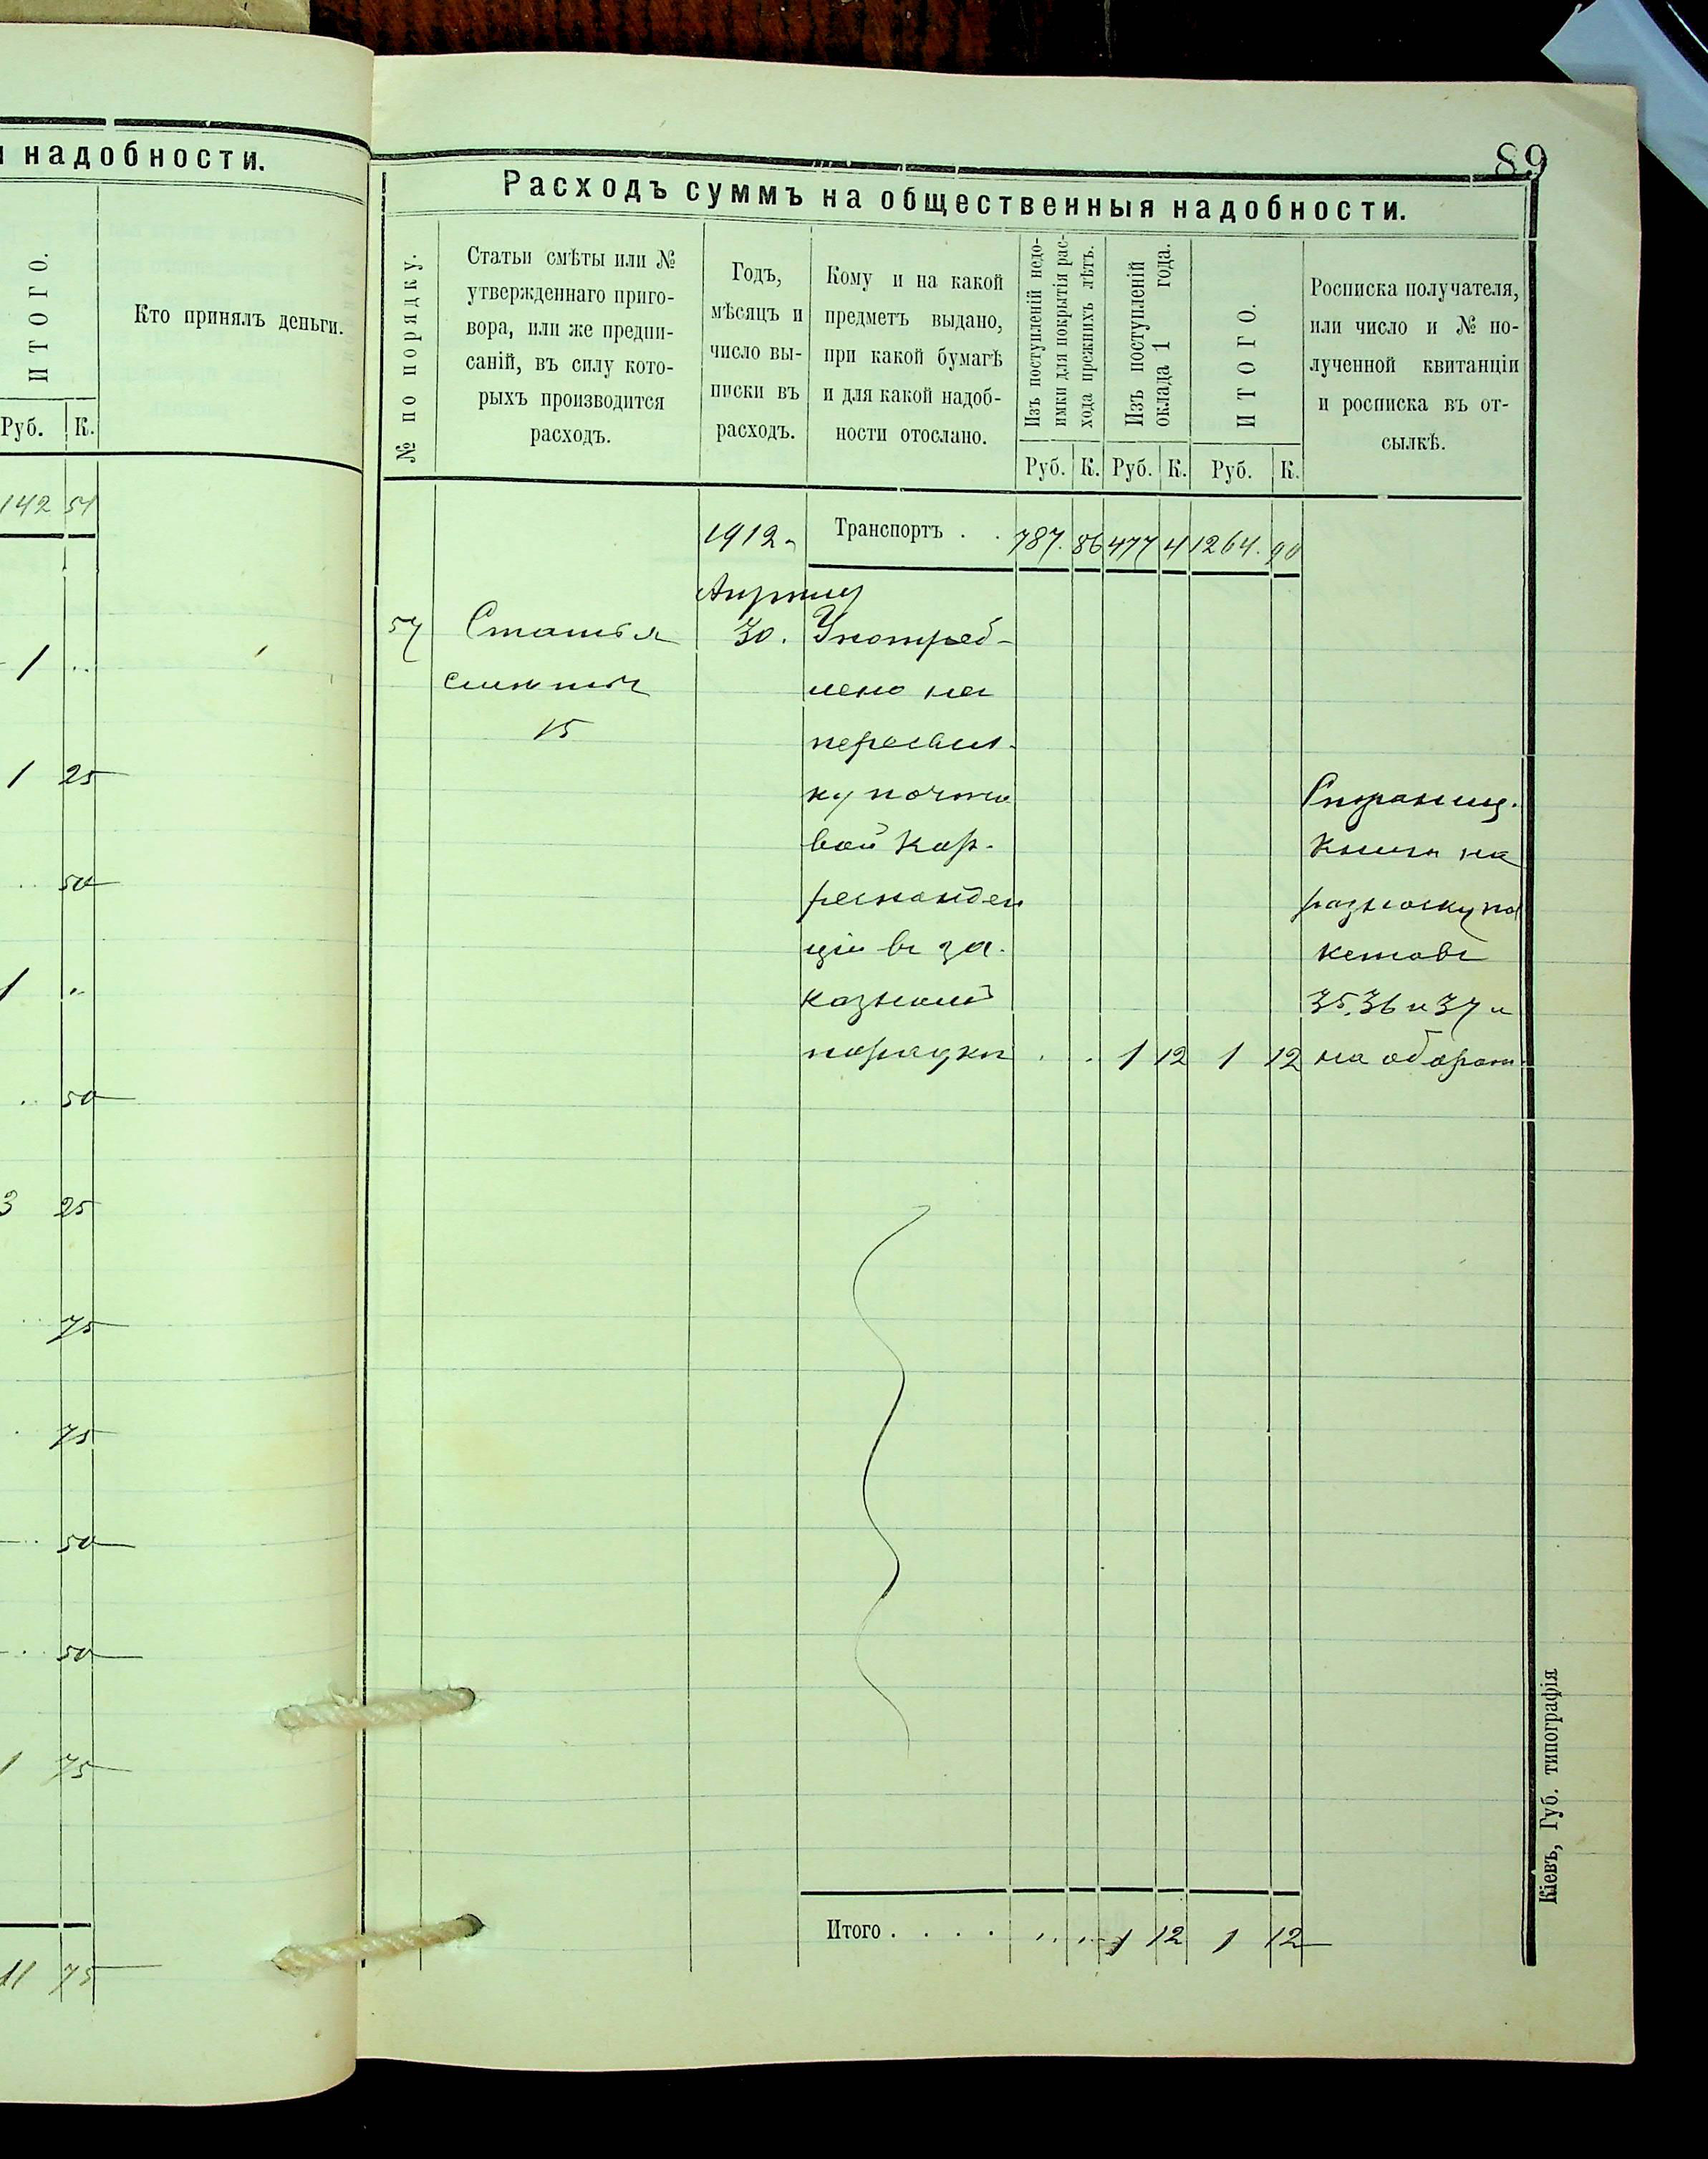 и надобности.
ИТОГО.
Кто принялъ деньги.
Руб. К.
142 54
1 ..
1 25
.. 50
1 ..
.. 50
3 25
.. 75
. 75
... 50
.. 50
1 75
11 75
89
Расходъ суммъ на общественныя надобности.
№ по порядку.
Статьи смѣты или №
утвержденнаго приго-
вора, или же предпи-
саній, въ силу кото-
рыхъ производится
расходъ.
Годъ,
мѣсяцъ и
число вы-
писки въ
расходъ.
Кому и на какой
предметъ выдано,
при какой бумагѣ
и для какой надоб-
ности отослано.
Изъ поступленій недо-
имки для покрытія рас-
хода прежнихъ лѣтъ.
Изъ поступленій
оклада 1 года.
ИТОГО.
Росписка получателя,
или число и № по-
лученной квитанціи
и росписка въ от-
сылкѣ.
Руб. К. Руб. К. Руб. К.
1912. Транспортъ . . 787. 86 477 4 1264. 90
Апрѣля
57 Статья 30. Употреб-
смѣты лено на
15 пересыл-
ку почто
вой кор-
респонден
ціи въ за-
казномъ
порядкѣ . . 1 12 1 12
Страниц.
Книги на
разноску па
кетовъ
35, 36 и 37 и
на оборот.
Итого . . . . .. .. 1 12 1 12
Кіевъ, Губ. типографія